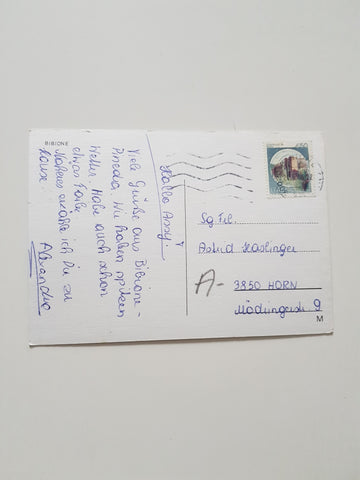 BIBIONE
Hallo Assy!
Viele Grüße aus Bibione -
Pineda. Wir haben
Wetter. Habe auch schon
etwas Farbe.
erzähle ich Dir zu
Hause.
Alexandra
Sg. Frl.
Astrid Haslinger
A- 3850 HORN
Mödringerstr. 9
M